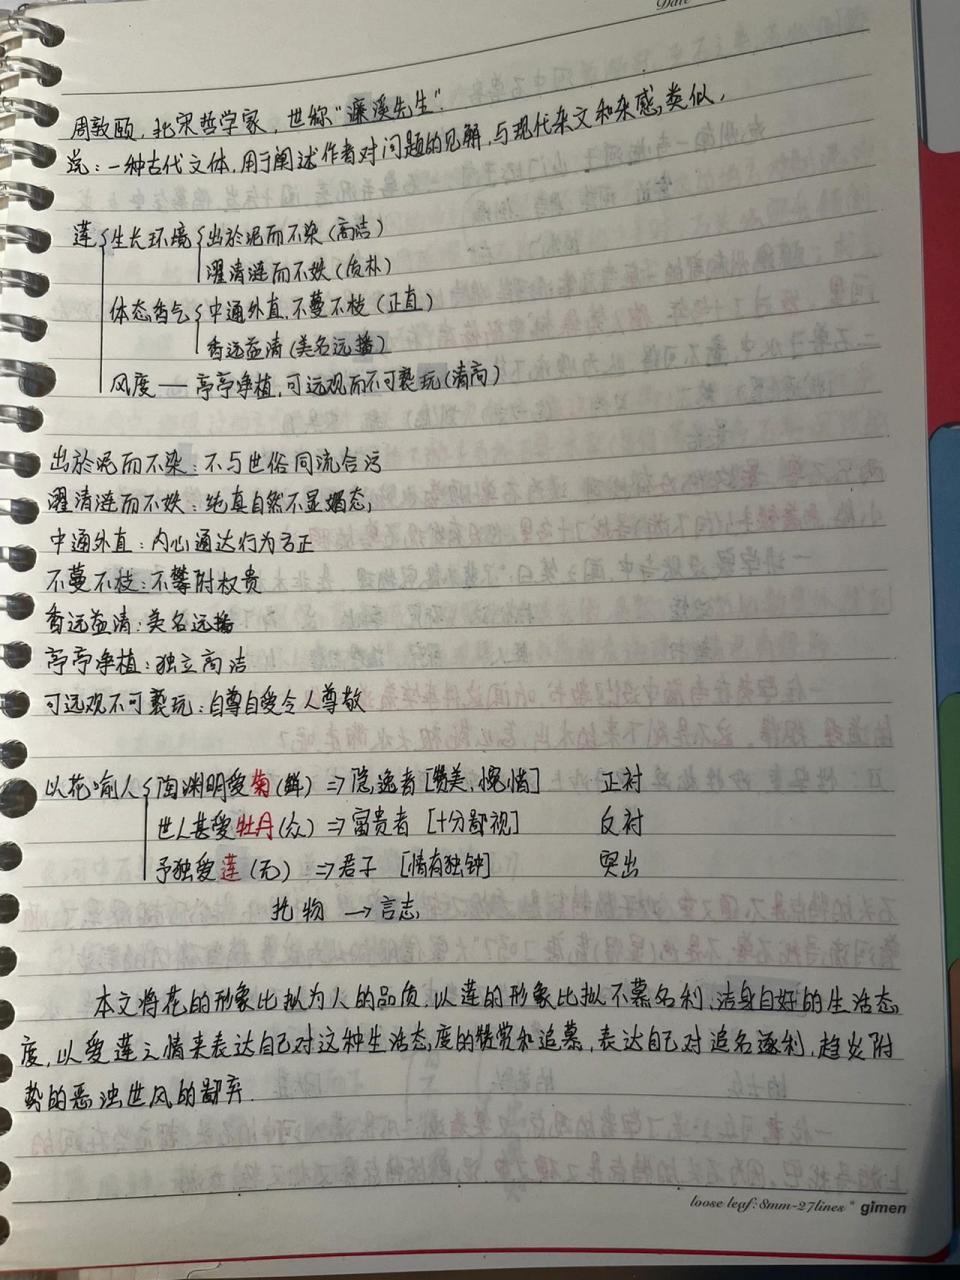 Date
周敦颐，北宋哲学家，世称"濂溪先生".
说：一种古代文体，用于阐述作者对问题的见解，与现代杂文和杂感类似，
莲 生长环境 出於泥而不染(高洁)
濯清涟而不妖(质朴)
体态香气 中通外直，不蔓不枝(正直)
香远益清(美名远播)
风度 — 亭亭净植，可远观而不可亵玩(清高)
出於泥而不染：不与世俗同流合污
濯清涟而不妖：纯真自然不显媚态，
中通外直：内心通达行为方正
不蔓不枝：不攀附权贵
香远益清：美名远播
亭亭净植：独立高洁
可远观不可亵玩：自尊自爱令人尊敬
以花喻人 陶渊明爱菊(鲜) ⇒ 隐逸者 [赞美，惋惜] 正衬
世人甚爱牡丹(众) ⇒ 富贵者 [十分鄙视] 反衬
予独爱莲(无) ⇒ 君子 [情有独钟] 突出
托物 → 言志
本文将花的形象比拟为人的品质，以莲的形象比拟不慕名利、洁身自好的生活态
度，以爱莲之情来表达自己对这种生活态度的赞赏和追慕，表达自己对追名逐利，趋炎附
势的恶浊世风的鄙弃.
loose leaf:8mm-27lines * gimen